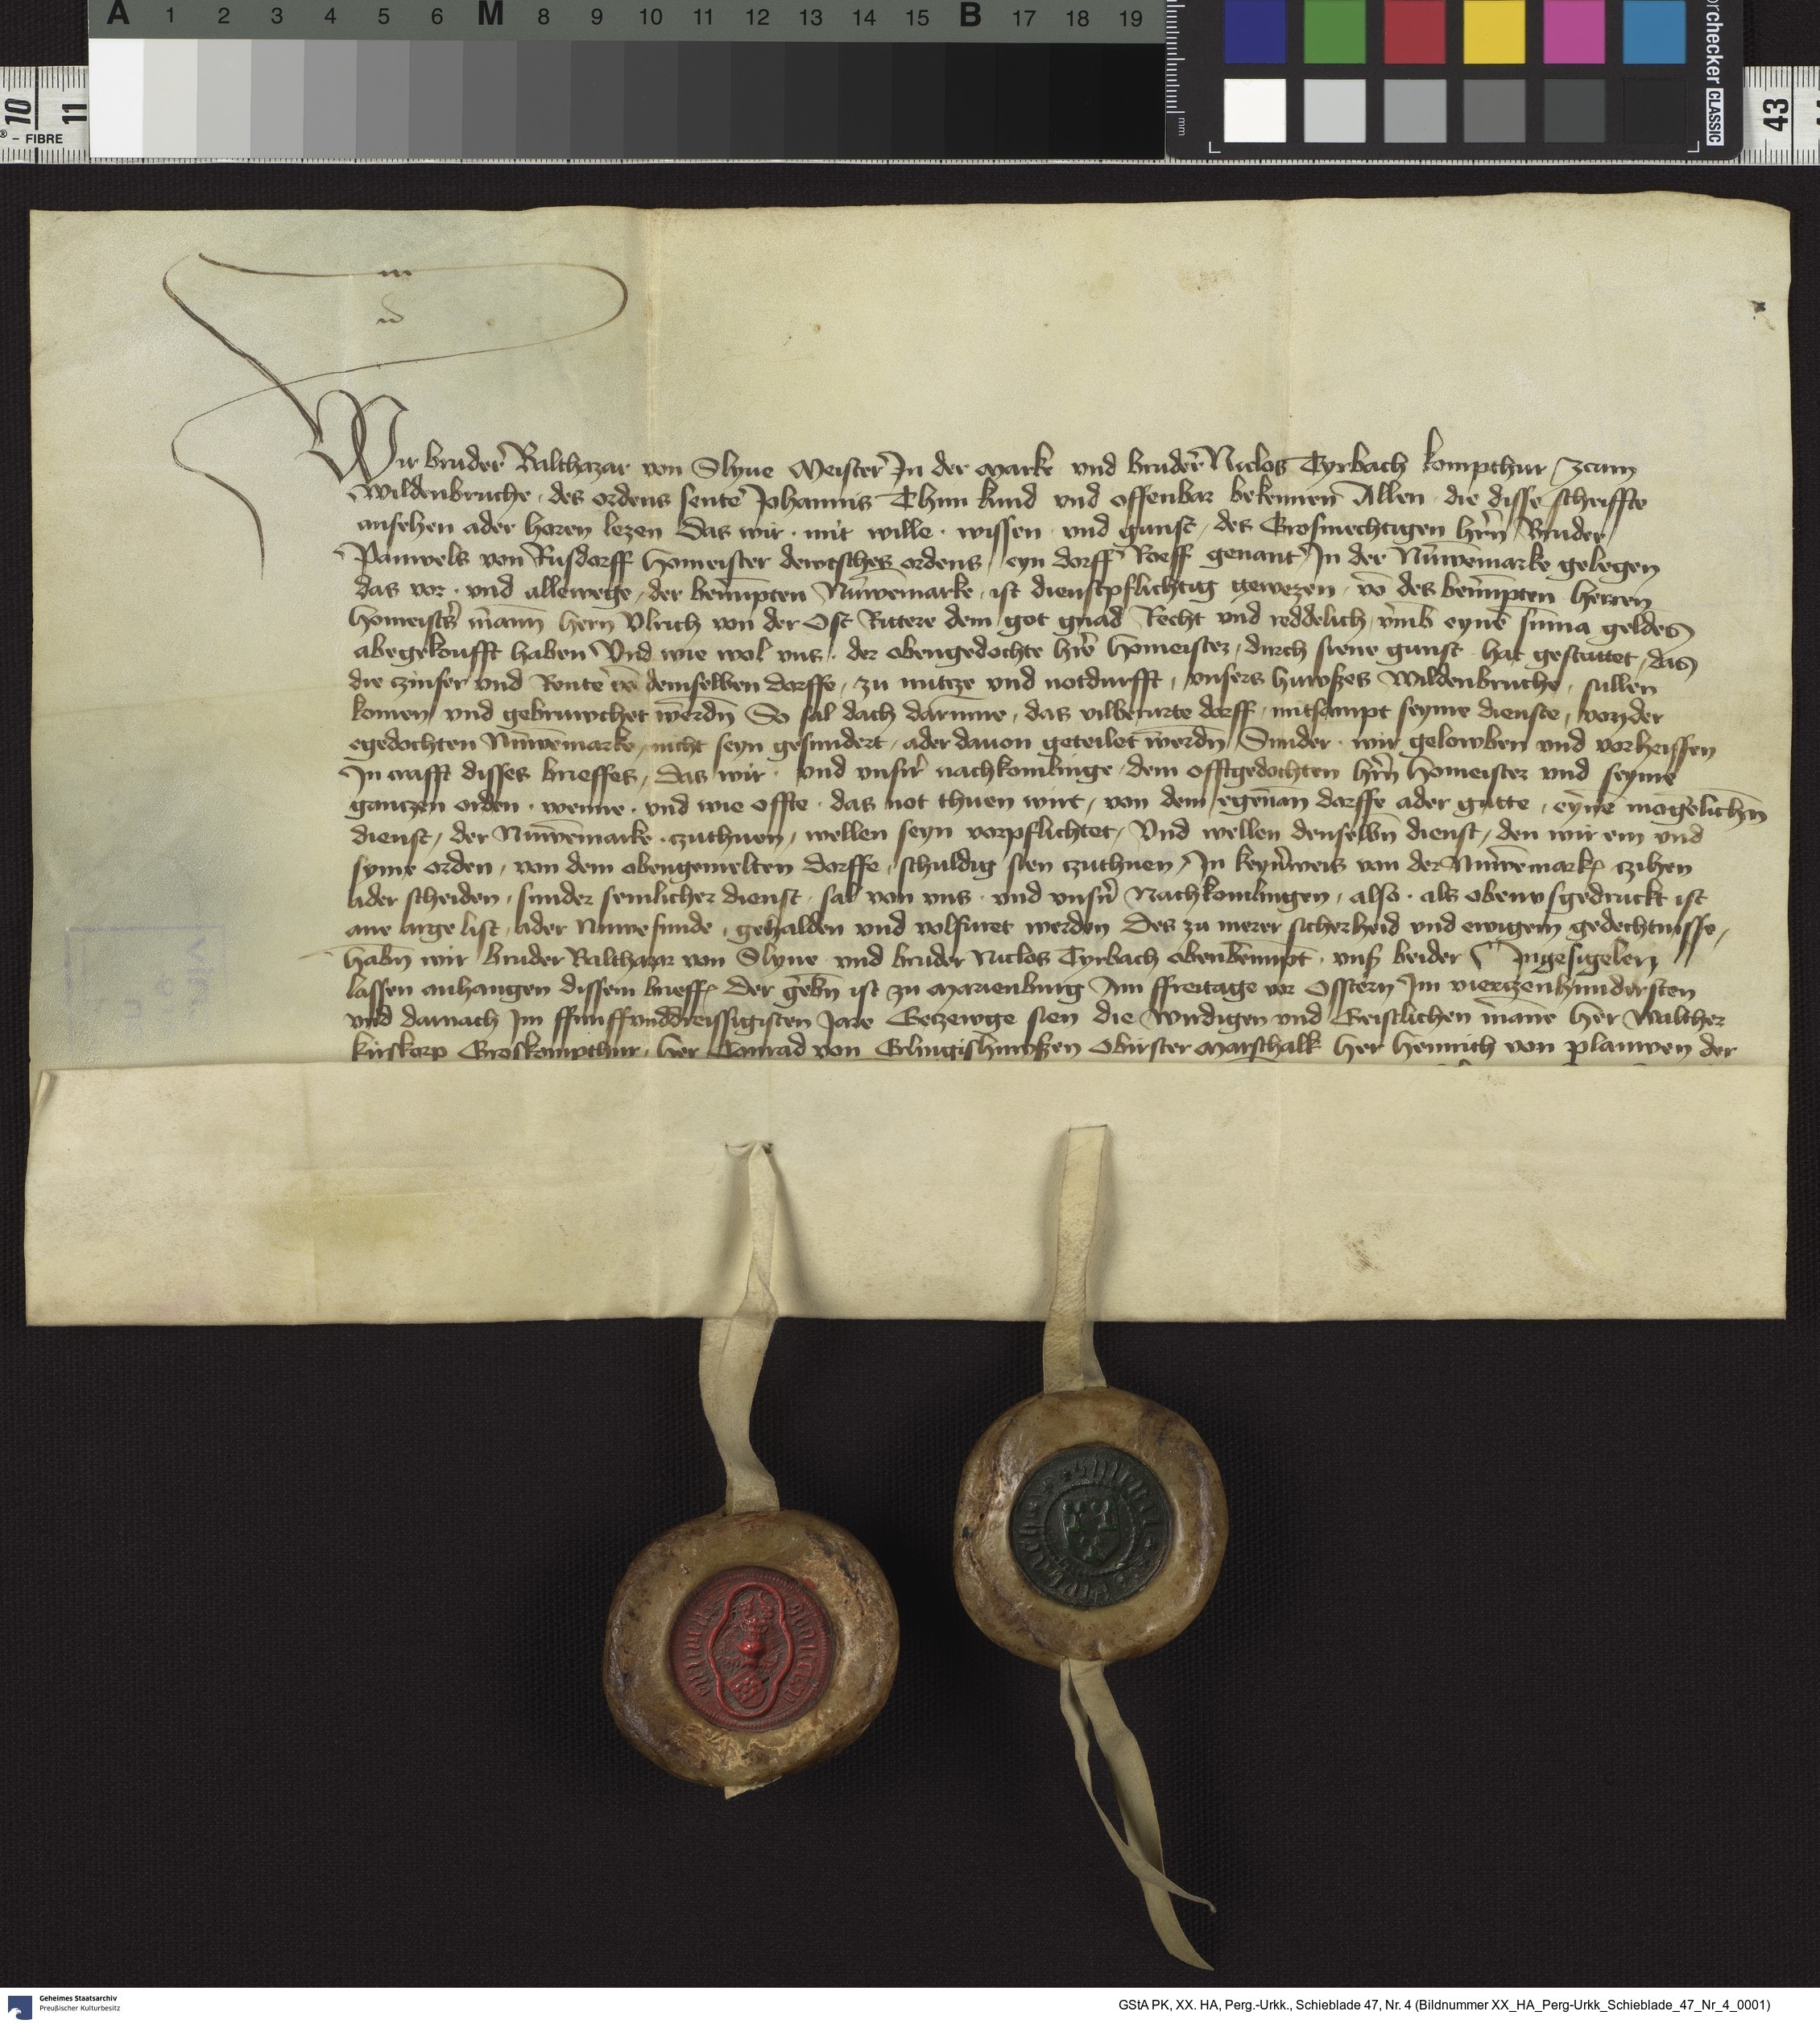 A 1 2 3 4 5 6 M 8 9 10 11 12 13 14 15 B 17 18 19
orchecker CLASSIC
mm
10 11 43
® – FIBRE
Wir bruder Balthazar von Slyue Meister In der Marke vnd bruder Niclos Tyrbach kompthur zcum
Wildenbruche des ordens sente Johannis Thun kund vnd offenbar bekennen Allen die disse schriffte
ansehen ader horen lezen Das wir mit wille wissen vnd gunst des Grosmechtigen hern Bruder
Pauwels von Rusdorff Homeister dewtsches ordens eyn dorff Roeff genant In der Nuwemarke gelegen
das vor vnd allewege der benumpten Nuwemarke ist dienstpflichtig gewezen vo des benumpten herren
homeisters mann hern Vlrich von der Ost Rittere dem got gnad Recht vnd reddelich vmb eyne summa geldes
abegekoufft haben Vnd wie wol vns der obengedochte here homeister durch siene gunst hat gestattet das
die czinser vnd Rente vo demselben dorffe zu nutcze vnd notdurfft vnsers huwszes Wildenbruche sullen
komen vnd gebruwchet werdn So sal dach darume das vilberurte dorff mitsampt seyme dienste von der
egedochten Nuwemarke nicht seyn gesundert ader dauon geteilet werdn Sunder wir gelowben vnd vorheissen
In crafft disses brieffes das wir vnd vnser nachkomlinge dem offtgedochten hern homeister vnd seyme
gantczen orden wenne vnd wie offte das not thuen wirt von dem egenan dorffe ader gutte eyne mogelichn
dienst der Nuwemarke zuthuen wellen seyn vorpflichtet Vnd wellen denselbn dienst den wir em vnd
syme orden von dem obengemelten dorffe schuldig sien czuthuen In keynweis von der Nuwemark czihen
ader scheiden sunder semlicher dienst sal von vns vnd vnsern Nachkomlingen also als obenvsgedruckt ist
ane arge list ader Nuwe funde gehalden vnd volfuret werden Des zu merer sicherheid vnd ewigem gedechtnisse
habn wir bruder Balthazar von Slyue vnd bruder Niclos Tyrbach obenbenumpt vnsz beider Ingesigelen
lassen anhangen dissem brieff Der gebn ist zu Marienburg Am ffreitage vor Osstern Im viertzenhundersten
vnd darnach Im ffunffvnddreissigisten Jare Getzewge sien die wirdigen vnd Geistlichen manne her Walther
kirskorp Groskompthur her Conrad von Erlingishuwszen Obirster Marschalk her Heinrich von plauwen der
Geheimes Staatsarchiv
Preußischer Kulturbesitz
GStA PK, XX. HA, Perg.-Urkk., Schieblade 47, Nr. 4 (Bildnummer XX_HA_Perg-Urkk_Schieblade_47_Nr_4_0001)